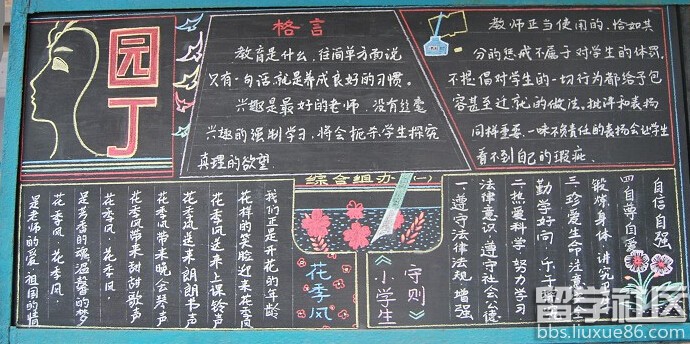 园丁
格言
教育是什么,往简单方面说
只有一句话,就是养成良好的习惯。
兴趣是最好的老师,没有丝毫
兴趣的强制学习,将会扼杀学生探究
真理的欲望。
教师正当使用的、恰如其
分的惩戒不属于对学生的体罚,
不提倡对学生的一切行为都给予包
容甚至迁就的做法。批评和表扬
同样重要,一味不负责任的表扬会让学生
看不到自己的瑕疵。
综合组办(一)
花季风
我们正是开花的年龄
花样的笑脸迎来花季风
花季风送来上课铃声
花季风送来朗朗书声
花季风带来晚会笑声
花季风带来甜甜歌声
花季风·花季风·
是芳香的魂温馨的梦
花季风·花季风·
是老师的爱·祖国的情
《小学生
守则》
一、遵守法律法规,增强
法律意识.遵守社会公德
二、热爱科学,努力学习
勤学好问,乐于
三、珍爱生命,注意安
锻炼身体,讲究
四自尊自爱
自信自强
留学社区
bbs.liuxue86.com